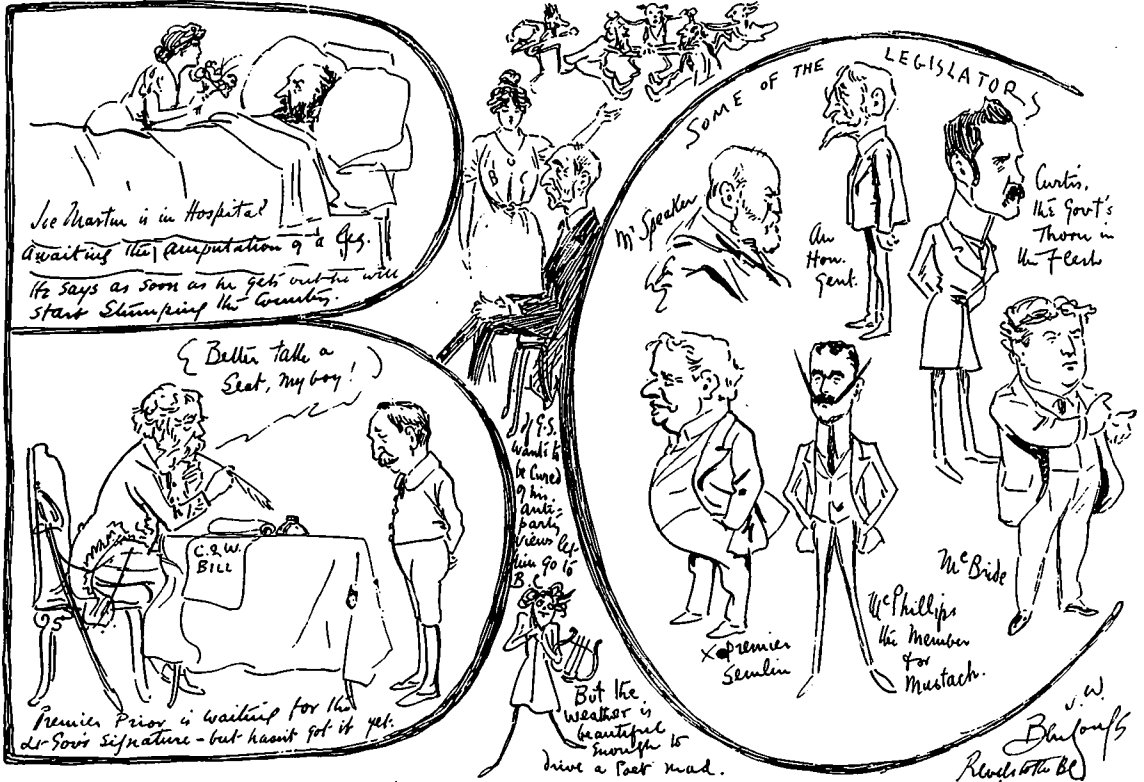 Joe Martin is in Hospital
awaiting the amputation of a leg.
He says as soon as he gets out he will
start Stumping the Country.
Better take a
Seat, my boy!
C. & W.
BILL
Premier Prior is waiting for the
Lt-Gov's signature - but hasn't got it yet.
B C
If G.S.
wants to
be cured
of his
anti-
party
views let
him go to
B.C.
But the
weather is
beautiful
enough to
drive a Poet mad.
SOME OF THE LEGISLATORS
Mr Speaker
An
Hon.
Gent.
Curtis,
the Govt's
Thorn in
the Flesh
X Premier
Semlin
McPhillips
the Member
for
Mustach.
McBride
J. W.
Bengough
Revelstoke BC